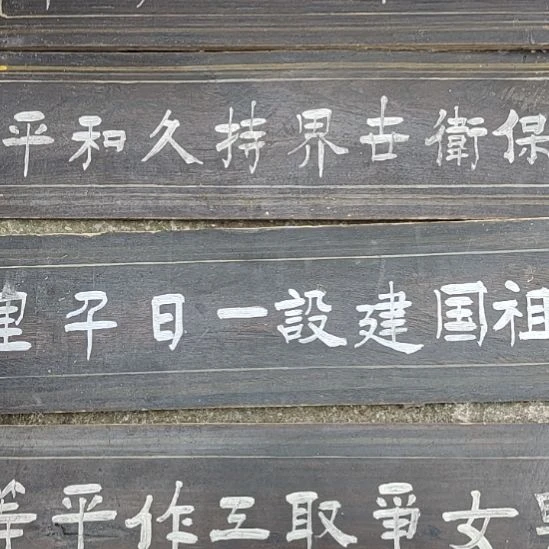 保衛世界持久和平
祖国建設一日千里
女爭取工作平等